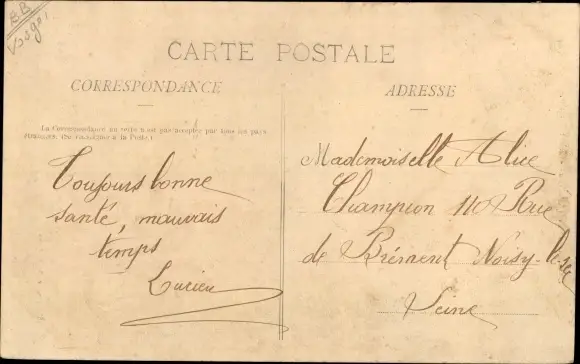 BB
Vosges
CARTE POSTALE
CORRESPONDANCE
ADRESSE
La Correspondance au verso n'est pas acceptée par tous les pays
étrangers. (Se renseigner à la Poste.)
Toujours bonne
santé, mauvais
temps
Lucien
Mademoiselle Alice
Champion 110 Rue
de Brément Noisy-le-sec
Seine